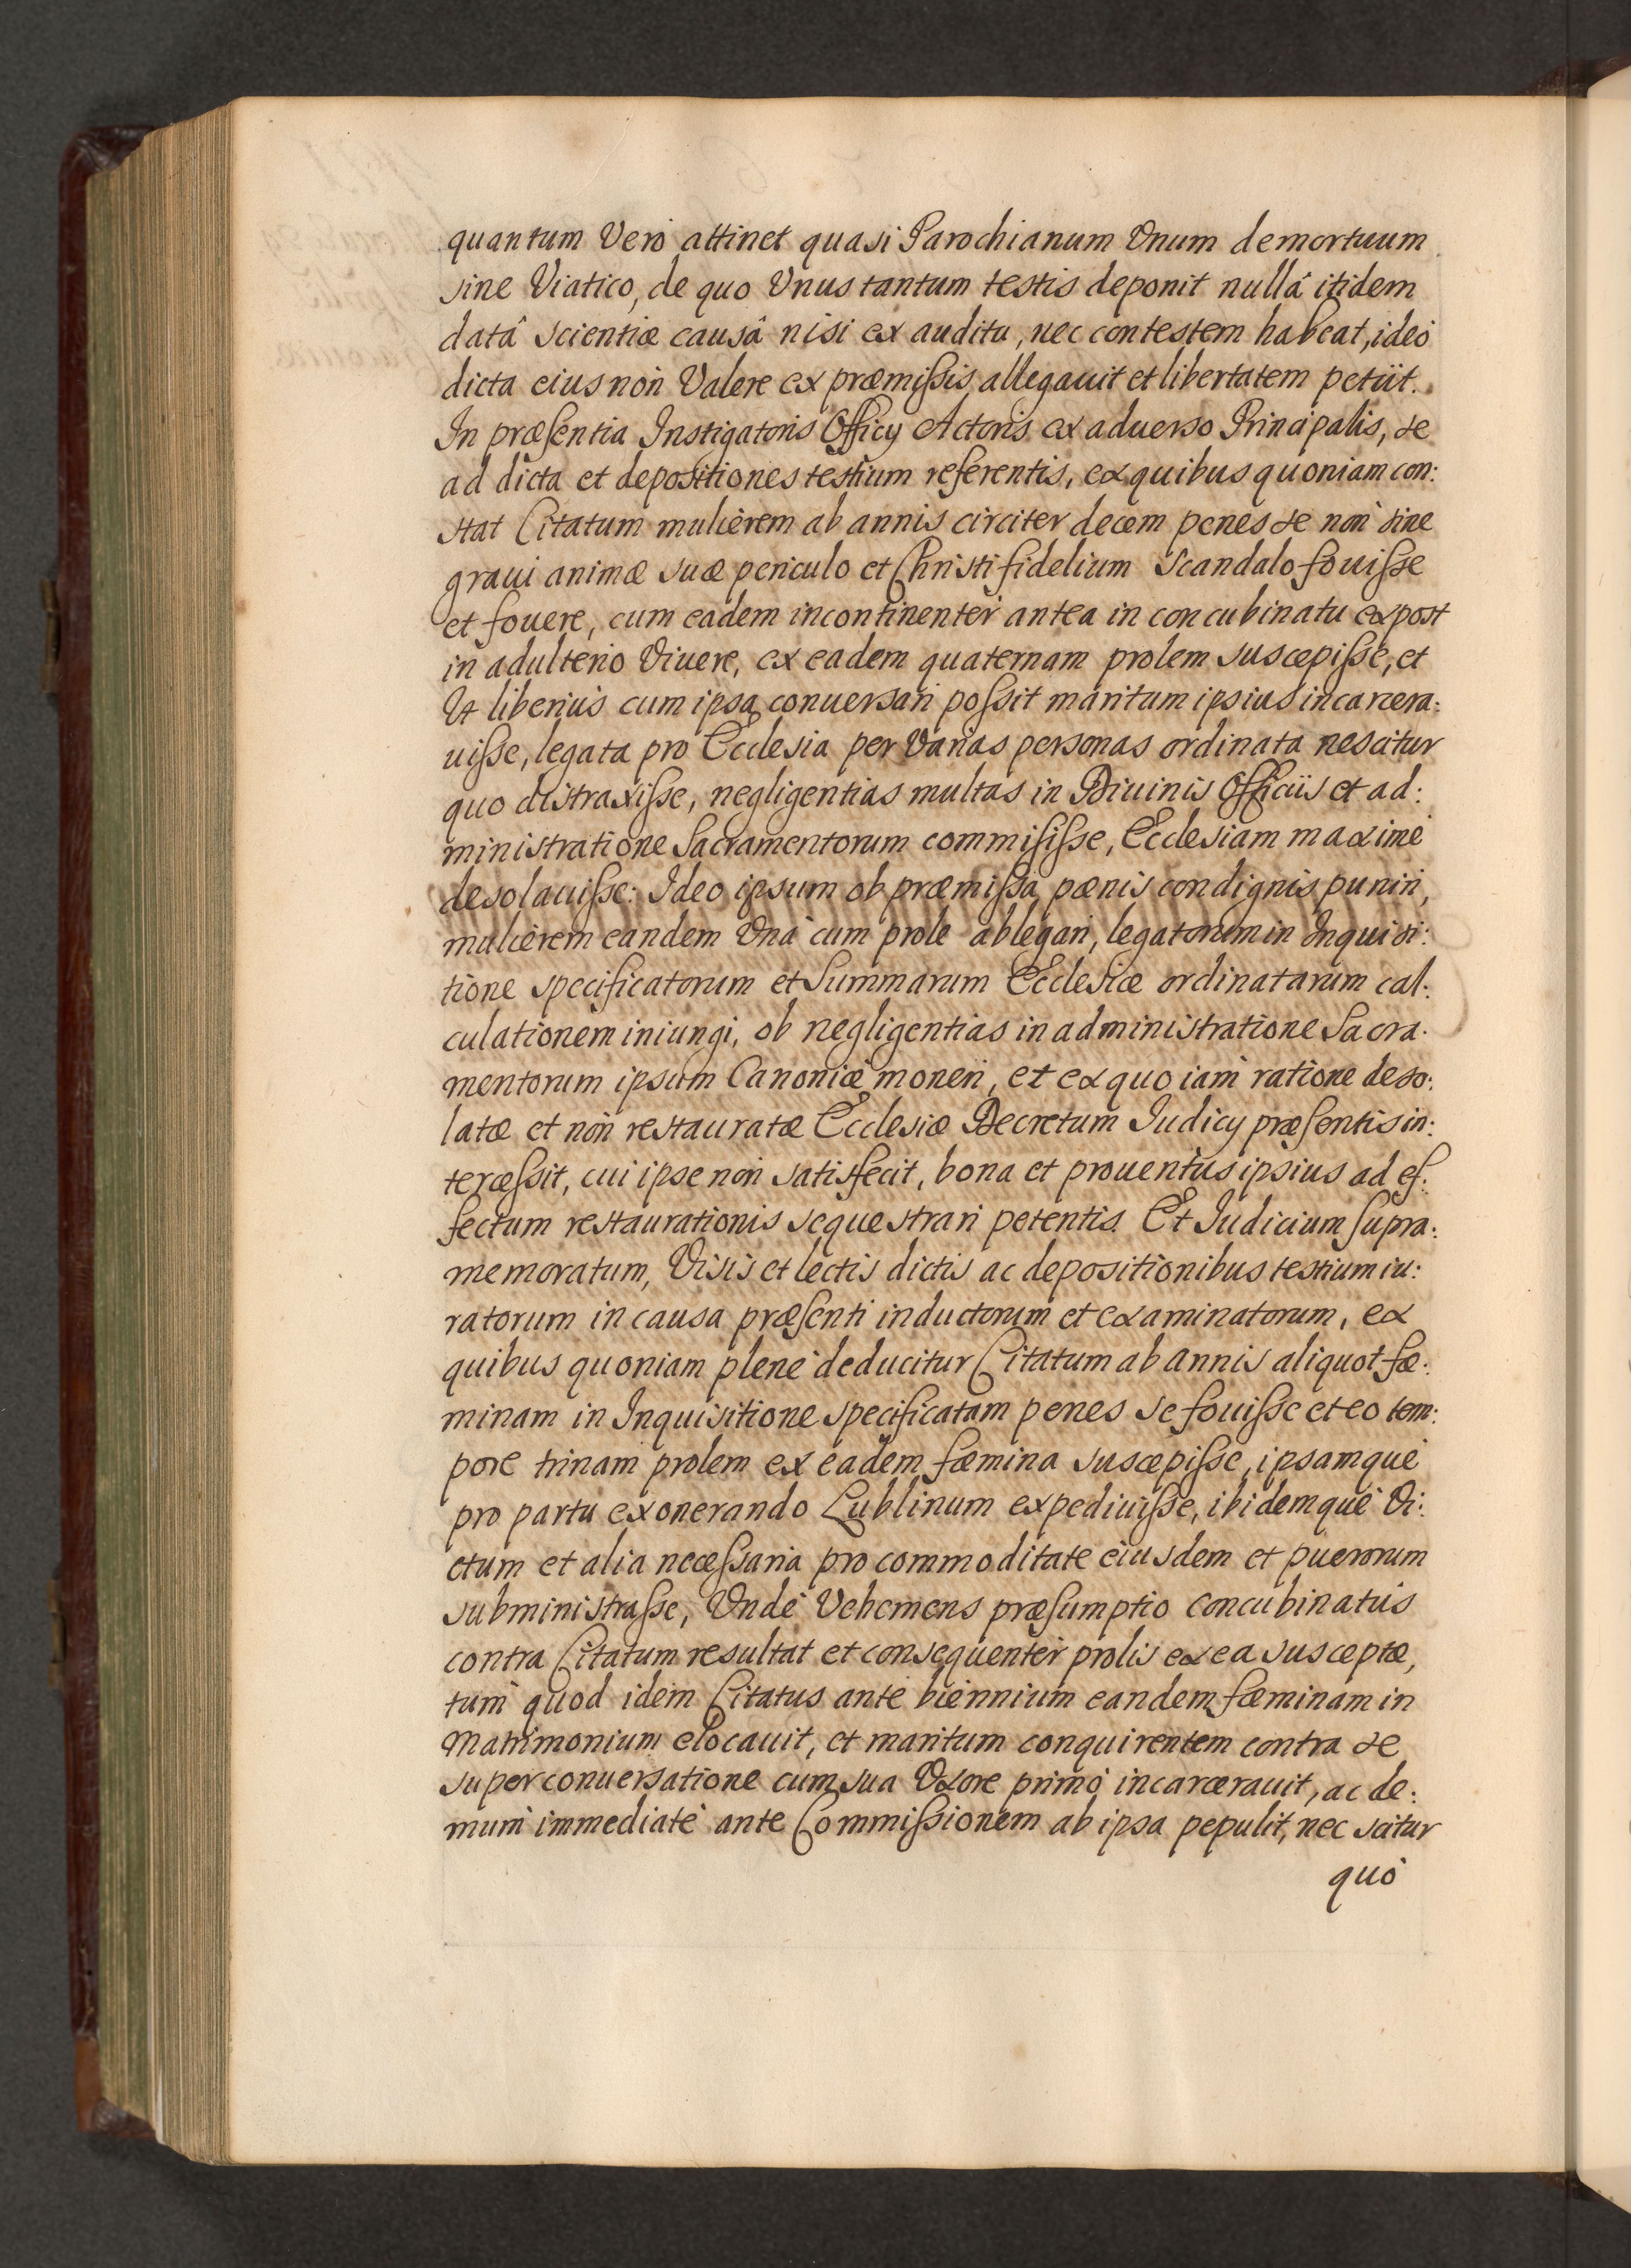 quantum Verò attinet quasi Parochianum Vnum demortuum
sine Viatico, de quo Vnus tantum testis deponit nullâ itidem
datâ scientiæ causâ nisi ex auditu, nec contestem habeat, ideò
dicta eius non Valere ex præmissis allegauit et libertatem petÿt.
In præsentia Instigatoris Officÿ Actoris ex aduerso Principalis, se
ad dicta et depositiones testium referentis, ex quibus quoniam con:
stat Citatum mulièrem ab annis circiter decem penes se non sine
graui animæ suæ periculo et Christi fidelium Scandalo fouisse
et fouere, cum eadem incontinenter antea in concubinatu ex post
in adulterio Viuere, ex eadem quaternam prolem suscepisse, et
Vt liberius cum ipsa conuersari possit maritum ipsius incarcera:
uisse, legata pro Ecclesia per Varias personas ordinata nescitur
quo distraxisse, negligentias multas in Diuinis Officiis et ad:
ministratione Sacramentorum commisisse, Ecclesiam maximè
desolauisse: Ideo ipsum ob præmissa pœnis condignis puniri,
mulièrem eandem Vnà cum prole ablegari, legatorum in Inquisi:
tione specificatorum et Summarum Ecclesiæ ordinatarum cal:
culationem iniungi, ob negligentias in administratione Sacra:
mentorum ipsum Canonicè moneri, et ex quo iam ratione deso:
latæ et non restauratæ Ecclesiæ Decretum Iudicÿ præsentis in:
tercessit, cui ipse non satisfecit, bona et prouentus ipsius ad ef:
fectum restaurationis sequestrari petentis. Et Iudicium supra:
memoratum, Visis et lectis dictis ac depositionibus testium iu:
ratorum in causa præsenti inductorum et examinatorum, ex
quibus quoniam plenè deducitur Citatum ab annis aliquot fæ:
minam in Inquisitione specificatam penes se fouisse et eo tem:
pore trinam prolem ex eadem fæmina suscepisse, ipsamquè
pro partu exonerando Lublinum expediuisse, ibidemquè Vi:
ctum et alia necessaria pro commoditate eiusdem et puerorum
subministrasse, Vndè Vehemens præsumptio concubinatus
contra Citatum resultat et consequenter prolis ex ea susceptæ,
tum quod idem Citatus ante biennium eandem fæminam in
Matrimonium elocauit, et maritum conquirentem contra se
super conuersatione cum sua Vxore primò incarcerauit, ac de:
mum immediatè ante Commissionem ab ipsa pepulit, nec scitur
quò